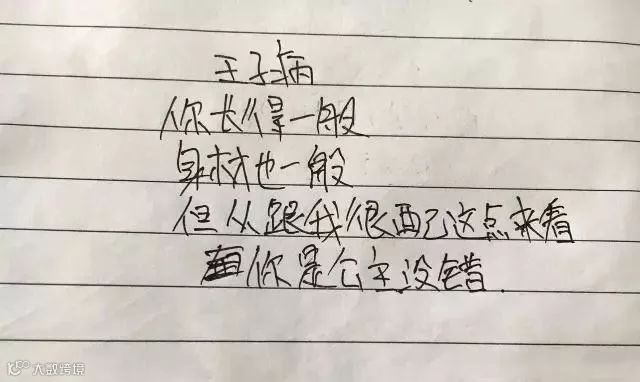 王子病
你长得一般
身材也一般
但从跟我很配这点来看
你是公主没错.
大数跨境